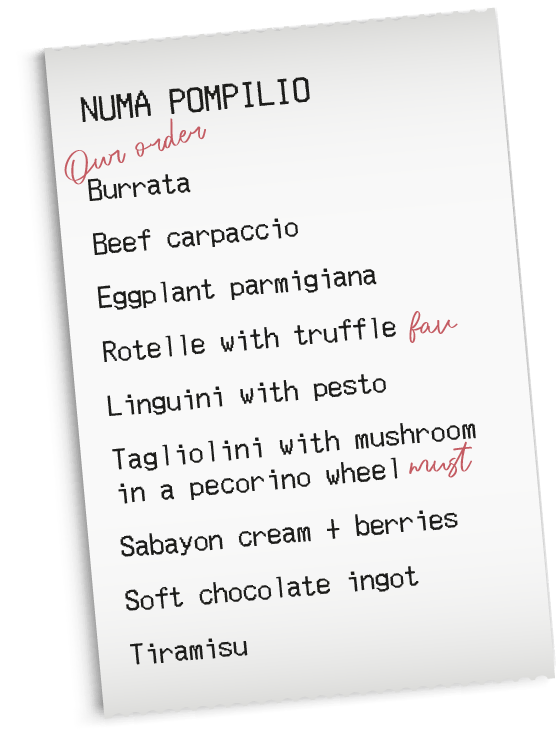 NUMA POMPILIO
Our order
Burrata
Beef carpaccio
Eggplant parmigiana
Rotelle with truffle fav
Linguini with pesto
Tagliolini with mushroom
in a pecorino wheel must
Sabayon cream + berries
Soft chocolate ingot
Tiramisu